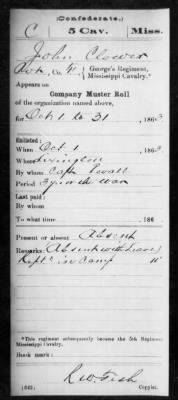 (Confederate.)
C 5 Cav. Miss.
John Clower
Co. George's Regiment,
Mississippi Cavalry.*
Appears on
Company Muster Roll
of the organization named above,
for Oct 1 to 31, 1863
Enlisted:
When Oct 1, 1863
Where Livingston
By whom Capt
Period war
Last paid:
By whom
To what time , 186 .
Present or absent Absent
Remarks: Absent with leave
in Camp
*This regiment subsequently became the 5th Regiment
Mississippi Cavalry.
Book mark:
R W Fish
(642) Copyist.